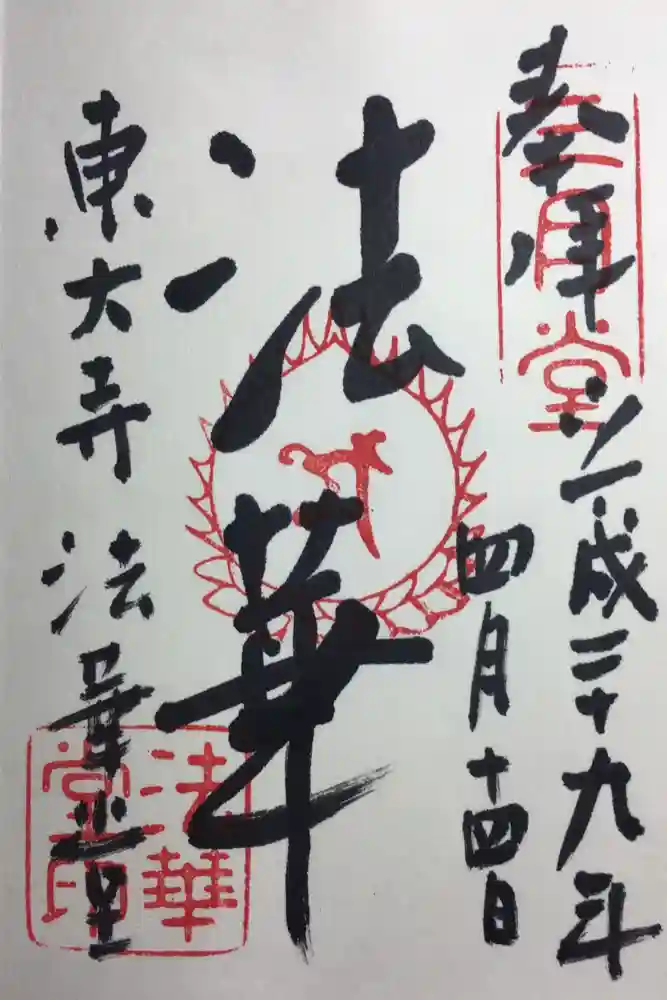 奉拝
三月堂
平成二十九年
四月十四日
法華
東大寺 法華堂
法華
堂印